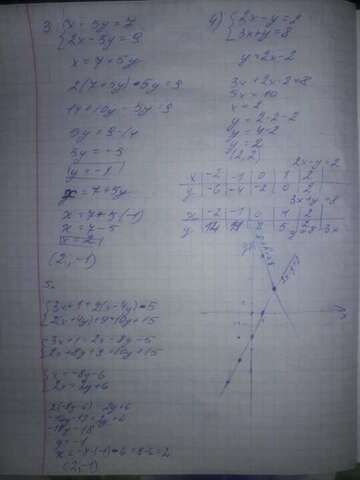 3. { x - 5y = 7
{ 2x - 5y = 9
x = 7+5y
2(7+5y) - 5y = 9
14+10y - 5y = 9
5y = 9-14
5y = -5
y = -1
x = 7+5y
x = 7+5(-1)
x = 7-5
x = 2
(2; -1)
4) { 2x-y=2
{ 3x+y=8
y = 2x-2
3x+2x-2=8
5x = 10
x = 2
y = 2·2-2
y = 4-2
y = 2
(2;2)
2x-y=2
x -2 -1 0 1 2
y -6 -4 -2 0 2
3x+y=8
x -2 -1 0 1 2
y 14 11 8 5 2
5.
{ 3x+1=2(x-4y)-5
{ 2(x+4y)+9=10y+15
3x+1=2x-8y-5
2x+8y+9=10y+15
{ x=-8y-6
{ 2x=2y+6
2(-8y-6)=2y+6
-16y-12=2y+6
-18y=18
y=-1
x=-8·(-1)-6=8-6=2
(2;-1)